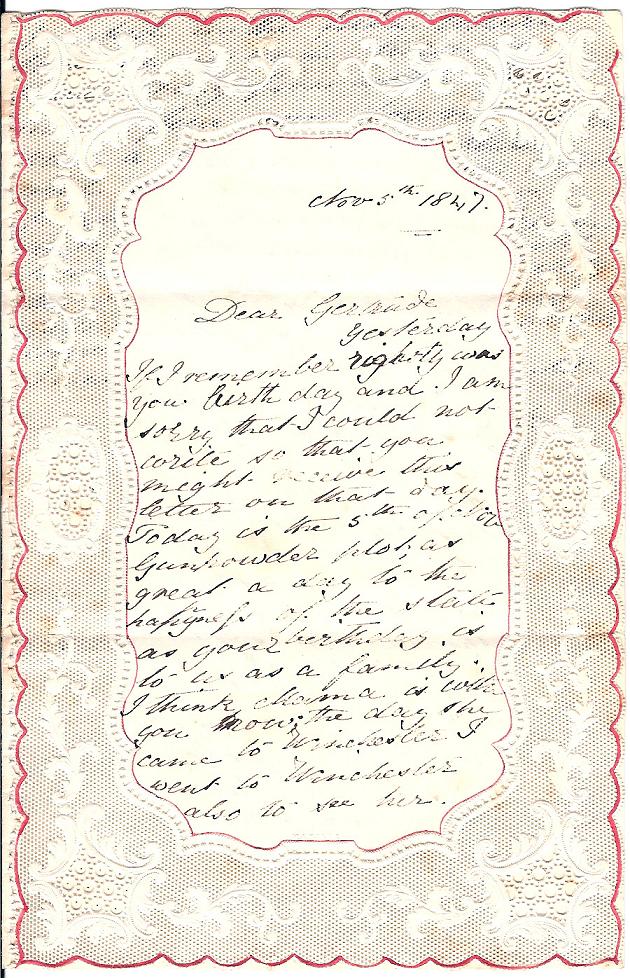 Nov 5th 1847.
Dear Gertrude
Yesterday
If I remember rightly was
you birth day and I am
sorry that I could not
write so that you
meght receive this
letter on that day.
Today is the 5th of Nov
Gunpowder plot, as
great a day to the
happyness of the state
as your birthday is
to us as a family.
I think Mama is with
you now, the day she
came to Winchester I
went to Winchester
also to see her.